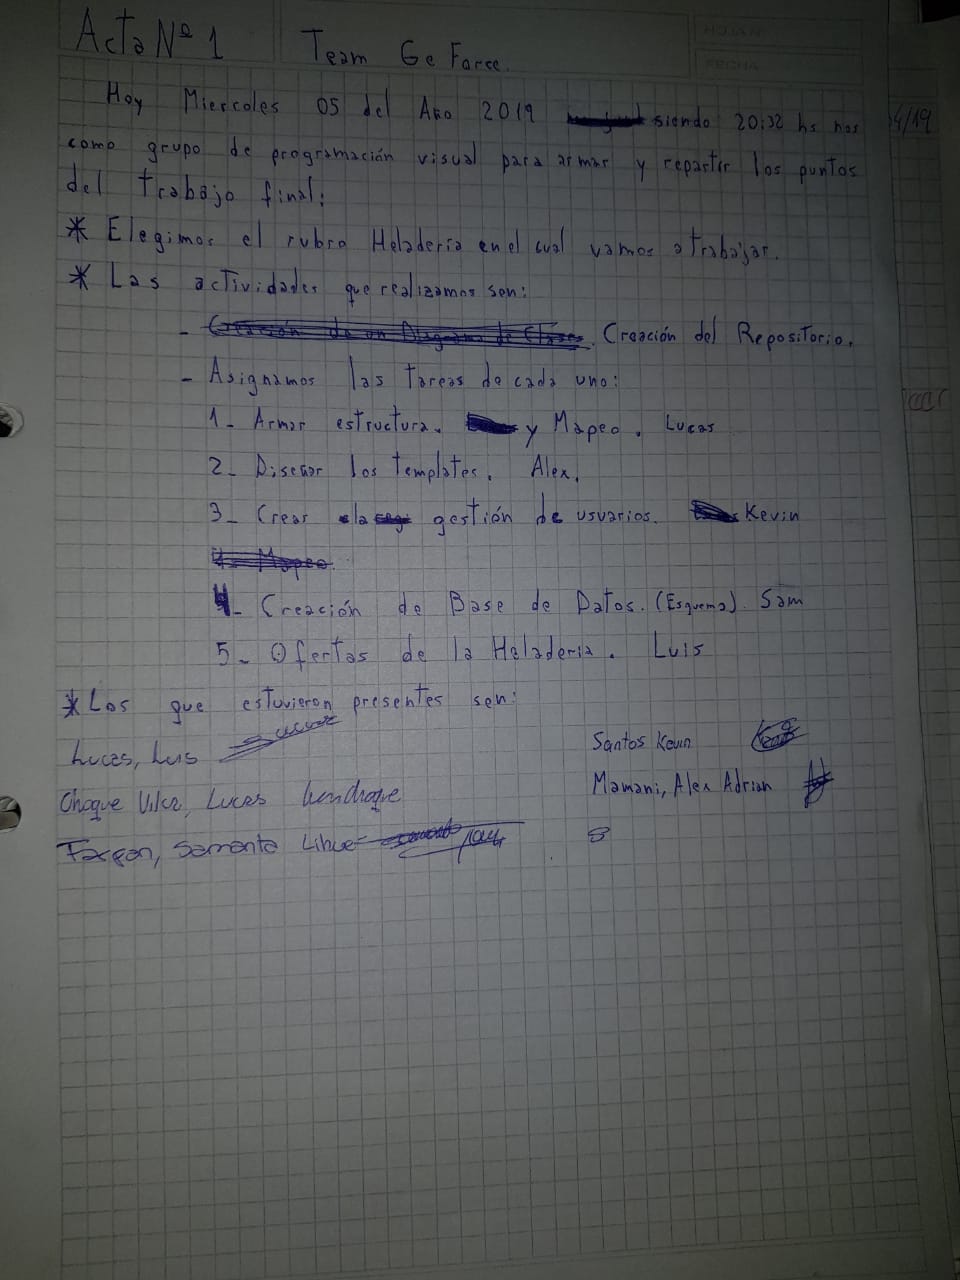 Acta Nº 1 Team Ge Force.
HOJA Nº
FECHA
Hoy Miercoles 05 del Año 2019 siendo 20:32 hs nos
como grupo de programación visual para armar y repartir los puntos
del trabajo final:
* Elegimos el rubro Heladeria en el cual vamos a trabajar.
* Las actividades que realizamos son:
- Creación de un Diagrama de Clases. Creación del Repositorio.
- Asignamos las tareas de cada uno:
1- Armar estructura. y Mapeo. Lucas
2- Diseñar los templates. Alex.
3- Crear la gestión de usuarios. Kevin
4- Mapeo
4- Creación de Base de Datos. (Esquema). Sam
5- Ofertas de la Heladeria. Luis
* Los que estuvieron presentes son:
Lucas, Luis
Santos Kevin
Choque Vilca, Lucas
Mamani, Alex Adrian
Farfan, Samanta
4/19